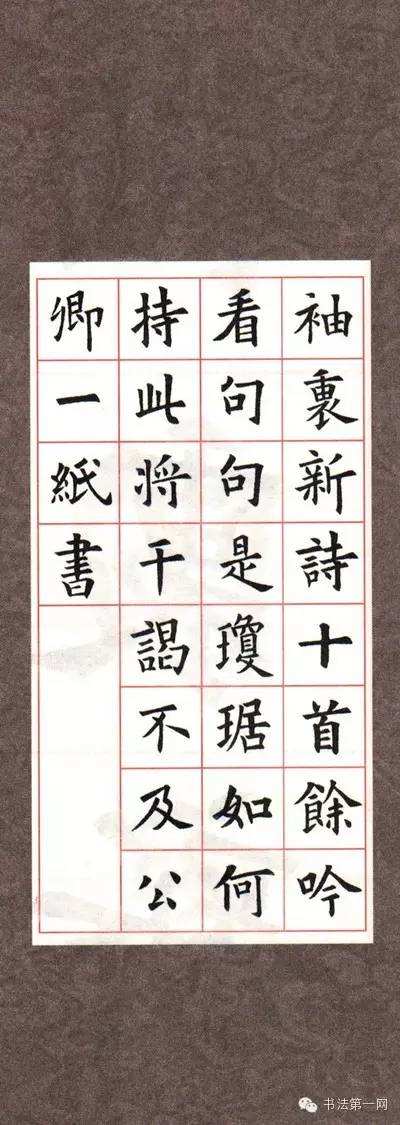 袖裏新詩十首餘吟
看句句是瓊琚如何
持此將干謁不及公
卿一紙書
书法第一网